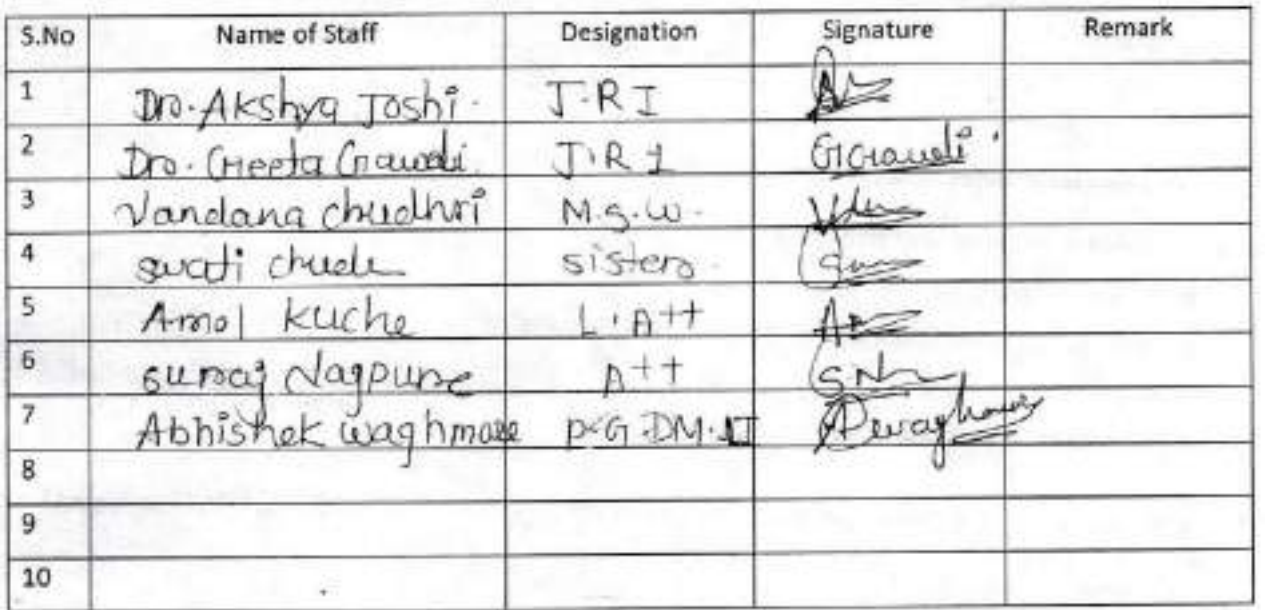 S.No Name of Staff Designation Signature Remark
1 Dro. Akshya Joshi. J.R I
2 Dro. Geeta Gawali. J.R 1 GGawali.
3 Vandana chudhri M.S.W.
4 swati chude sisters.
5 Amol Kuche L.Att
6 suraj Nagpure Att SN
7 Abhishek waghmare P.G.DM.LT
8
9
10